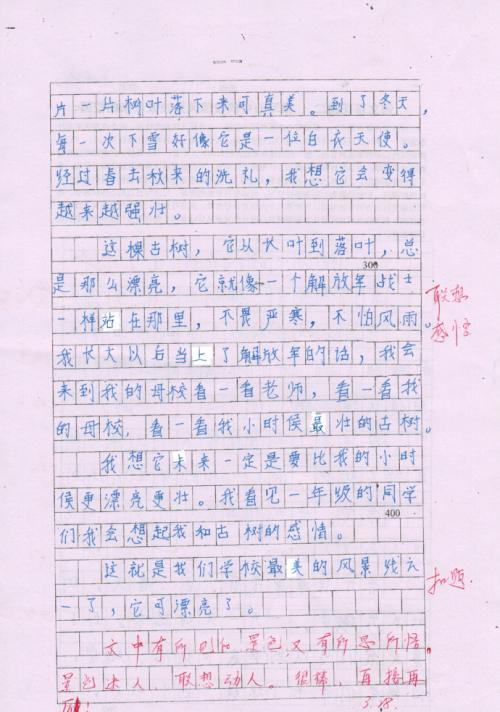 片一片树叶落下来可真美。到了冬天,
每一次下雪好像它是一位白衣天使。
经过春去秋来的洗礼,我想它会变得
越来越强壮。
这棵古树,它从长叶到落叶,总
300
是那么漂亮,它就像一个解放军战士
联想
一样站在那里,不畏严寒,不怕风雨。
感悟
我长大以后当上了解放军的话,我会
来到我的母校看一看老师,看一看我
的母校,看一看我小时侯最壮的古树。
我想它未来一定是要比我的小时
侯更漂亮更壮。我看见一年级的同学
400
们我会想起我和古树的感情。
这就是我们学校最美的风景线六
扣题
一了,它可漂亮了。
文中有所见的景色,又有所思所悟。
景色迷人,联想动人。很棒,再接再
厉! 3.18.